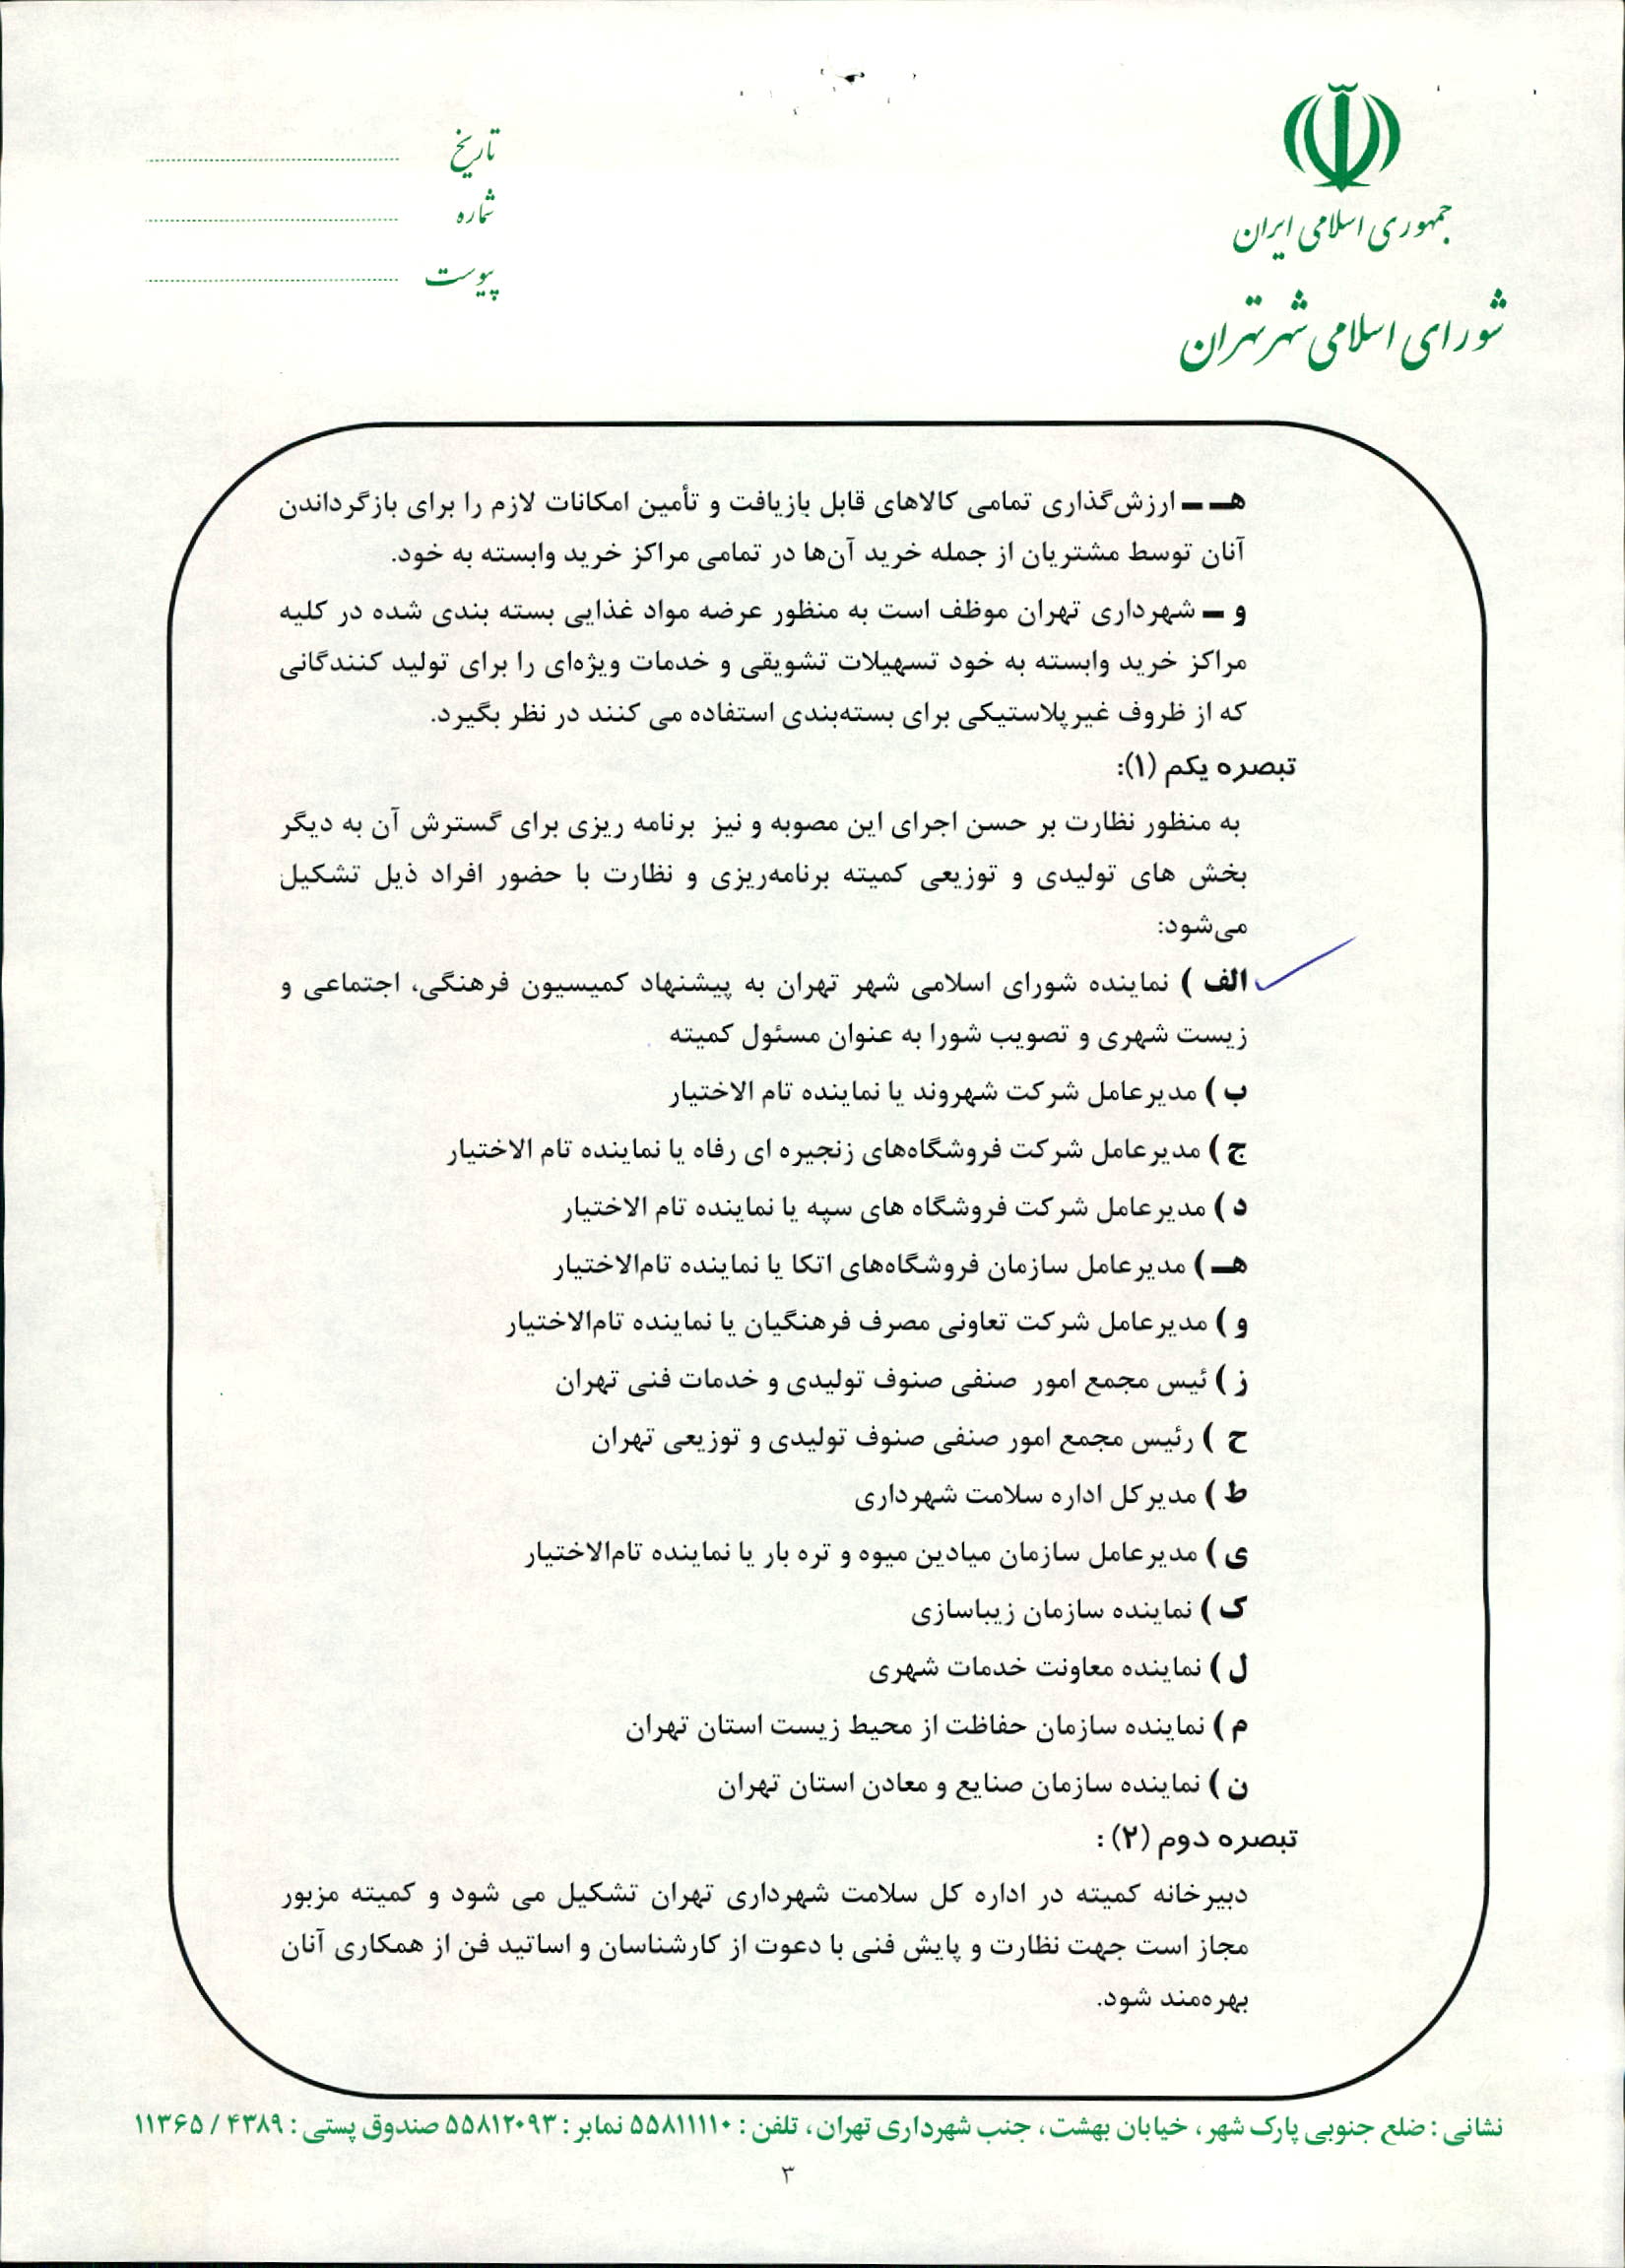 جمهوری اسلامی ایران
شورای اسلامی شهر تهران
تاریخ
شماره
پیوست
هـ ـ ارزش‌گذاری تمامی کالاهای قابل بازیافت و تأمین امکانات لازم را برای بازگرداندن
آنان توسط مشتریان از جمله خرید آن‌ها در تمامی مراکز خرید وابسته به خود.
و ـ شهرداری تهران موظف است به منظور عرضه مواد غذایی بسته بندی شده در کلیه
مراکز خرید وابسته به خود تسهیلات تشویقی و خدمات ویژه‌ای را برای تولید کنندگانی
که از ظروف غیرپلاستیکی برای بسته‌بندی استفاده می کنند در نظر بگیرد.
تبصره یکم (۱):
به منظور نظارت بر حسن اجرای این مصوبه و نیز برنامه ریزی برای گسترش آن به دیگر
بخش های تولیدی و توزیعی کمیته برنامه‌ریزی و نظارت با حضور افراد ذیل تشکیل
می‌شود:
الف ) نماینده شورای اسلامی شهر تهران به پیشنهاد کمیسیون فرهنگی، اجتماعی و
زیست شهری و تصویب شورا به عنوان مسئول کمیته
ب ) مدیرعامل شرکت شهروند یا نماینده تام الاختیار
ج ) مدیرعامل شرکت فروشگاه‌های زنجیره ای رفاه یا نماینده تام الاختیار
د ) مدیرعامل شرکت فروشگاه های سپه یا نماینده تام الاختیار
هـ ) مدیرعامل سازمان فروشگاه‌های اتکا یا نماینده تام‌الاختیار
و ) مدیرعامل شرکت تعاونی مصرف فرهنگیان یا نماینده تام‌الاختیار
ز ) ئیس مجمع امور صنفی صنوف تولیدی و خدمات فنی تهران
ح ) رئیس مجمع امور صنفی صنوف تولیدی و توزیعی تهران
ط ) مدیرکل اداره سلامت شهرداری
ی ) مدیرعامل سازمان میادین میوه و تره بار یا نماینده تام‌الاختیار
ک ) نماینده سازمان زیباسازی
ل ) نماینده معاونت خدمات شهری
م ) نماینده سازمان حفاظت از محیط زیست استان تهران
ن ) نماینده سازمان صنایع و معادن استان تهران
تبصره دوم (۲) :
دبیرخانه کمیته در اداره کل سلامت شهرداری تهران تشکیل می شود و کمیته مزبور
مجاز است جهت نظارت و پایش فنی با دعوت از کارشناسان و اساتید فن از همکاری آنان
بهره‌مند شود.
نشانی : ضلع جنوبی پارک شهر ، خیابان بهشت ، جنب شهرداری تهران ، تلفن : ۵۵۸۱۱۱۱۰ نمابر : ۵۵۸۱۲۰۹۳ صندوق پستی : ۴۳۸۹ / ۱۱۳۶۵
۳